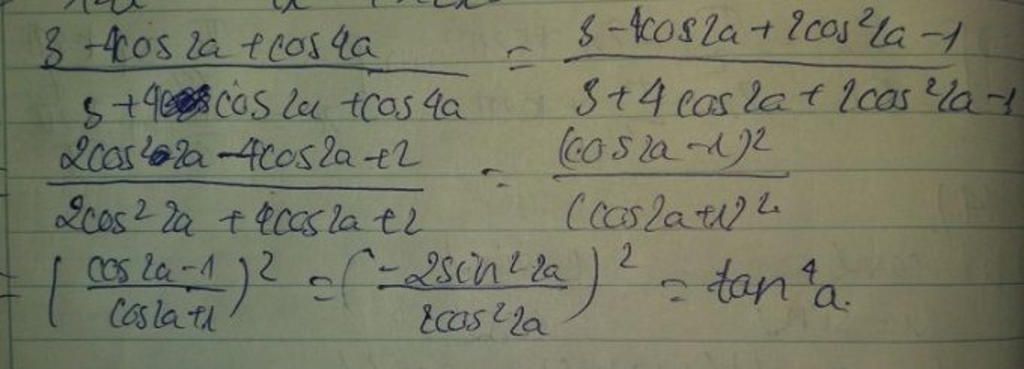 3 - 4cos 2a + cos 4a / 3 + 4 cos 2a + cos 4a = 3 - 4cos 2a + 2cos² 2a - 1 / 3 + 4 cos 2a + 2cos² 2a - 1
2cos² 2a - 4cos 2a + 2 / 2cos² 2a + 4cos 2a + 2 = (cos 2a - 1)² / (cos 2a + 1)²
= (cos 2a - 1 / cos 2a + 1)² = (-2sin² 2a / 2cos² 2a)² = tan⁴ a.